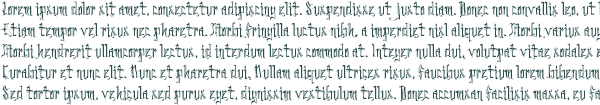 Lorem ipsum dolor sit amet, consectetur adipiscing elit. Suspendisse ut justo diam. Donec non convallis leo, ut l
Etiam tempor vel risus nec pharetra. Morbi fringilla luctus nibh, a imperdiet nisl aliquet in. Morbi varius aug
Morbi hendrerit ullamcorper lectus, id interdum lectus commodo at. Integer nulla dui, volutpat vitae sodales e
Curabitur et nunc elit. Nunc et pharetra dui. Nullam aliquet ultrices risus, faucibus pretium lorem bibendum
Sed tortor ipsum, vehicula sed purus eget, dignissim vestibulum tellus. Donec accumsan facilisis massa, eu fa